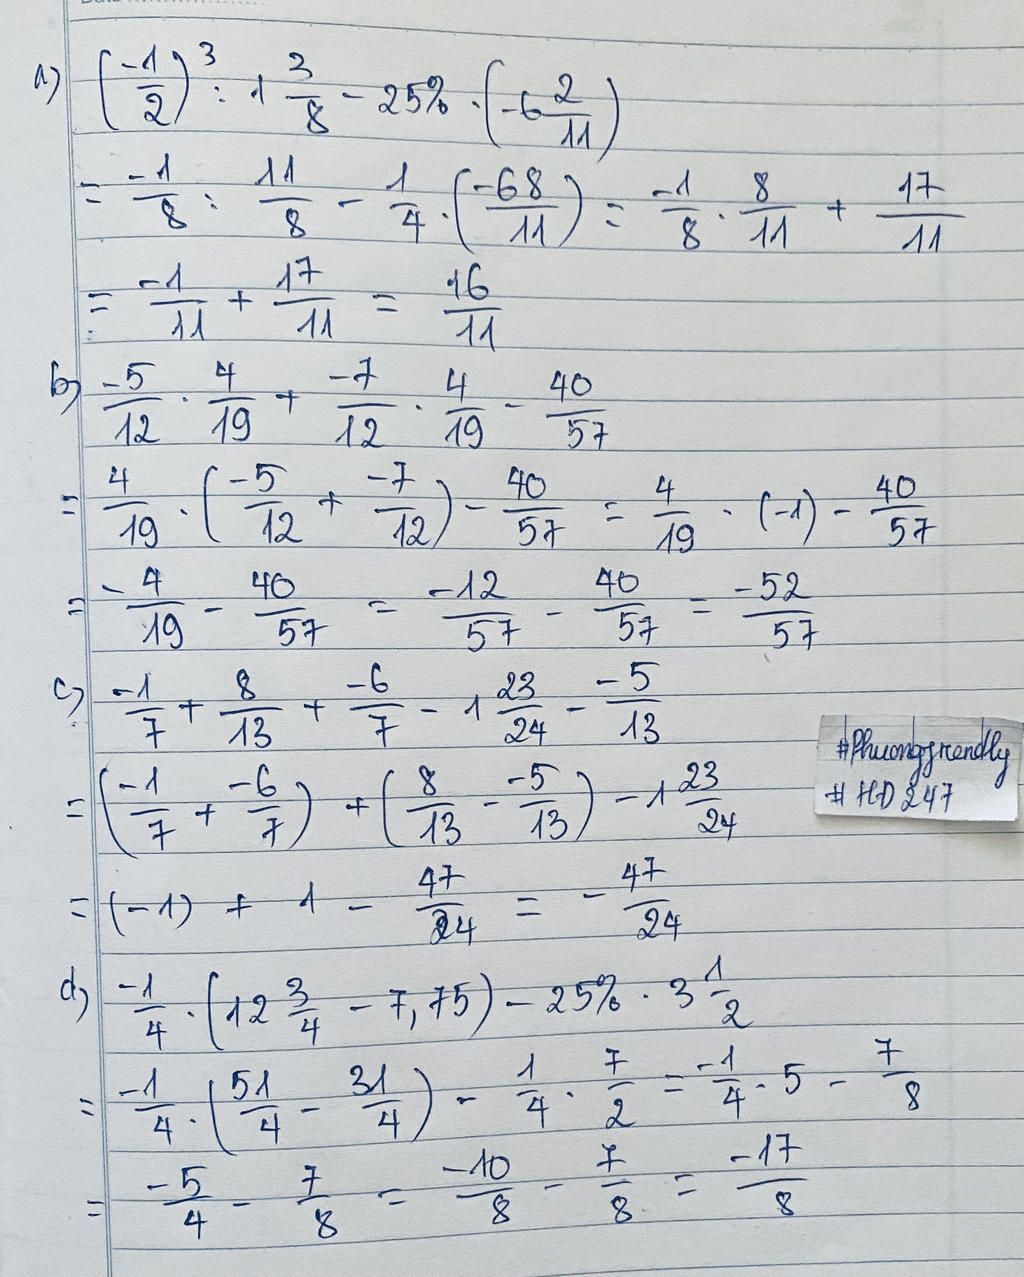 a) (-1/2)³ : 1 3/8 - 25% . (-6 2/11)
= -1/8 : 11/8 - 1/4 . (-68/11) = -1/8 . 8/11 + 17/11
= -1/11 + 17/11 = 16/11
b) -5/12 . 4/19 + -7/12 . 4/19 - 40/57
= 4/19 . (-5/12 + -7/12) - 40/57 = 4/19 . (-1) - 40/57
= -4/19 - 40/57 = -12/57 - 40/57 = -52/57
c) -1/7 + 8/13 + -6/7 - 1 23/24 - -5/13
= (-1/7 + -6/7) + (8/13 - -5/13) - 1 23/24
#Phuongfrendly
#HD247
= (-1) + 1 - 47/24 = - 47/24
d) -1/4 . (12 3/4 - 7,75) - 25% . 3 1/2
= -1/4 . (51/4 - 31/4) - 1/4 . 7/2 = -1/4 . 5 - 7/8
= -5/4 - 7/8 = -10/8 - 7/8 = -17/8